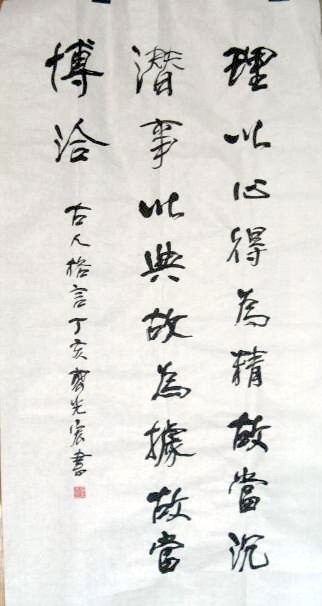 理以心得為精故當沉
潛事以典故為據故當
博洽
古人格言丁亥光宸書